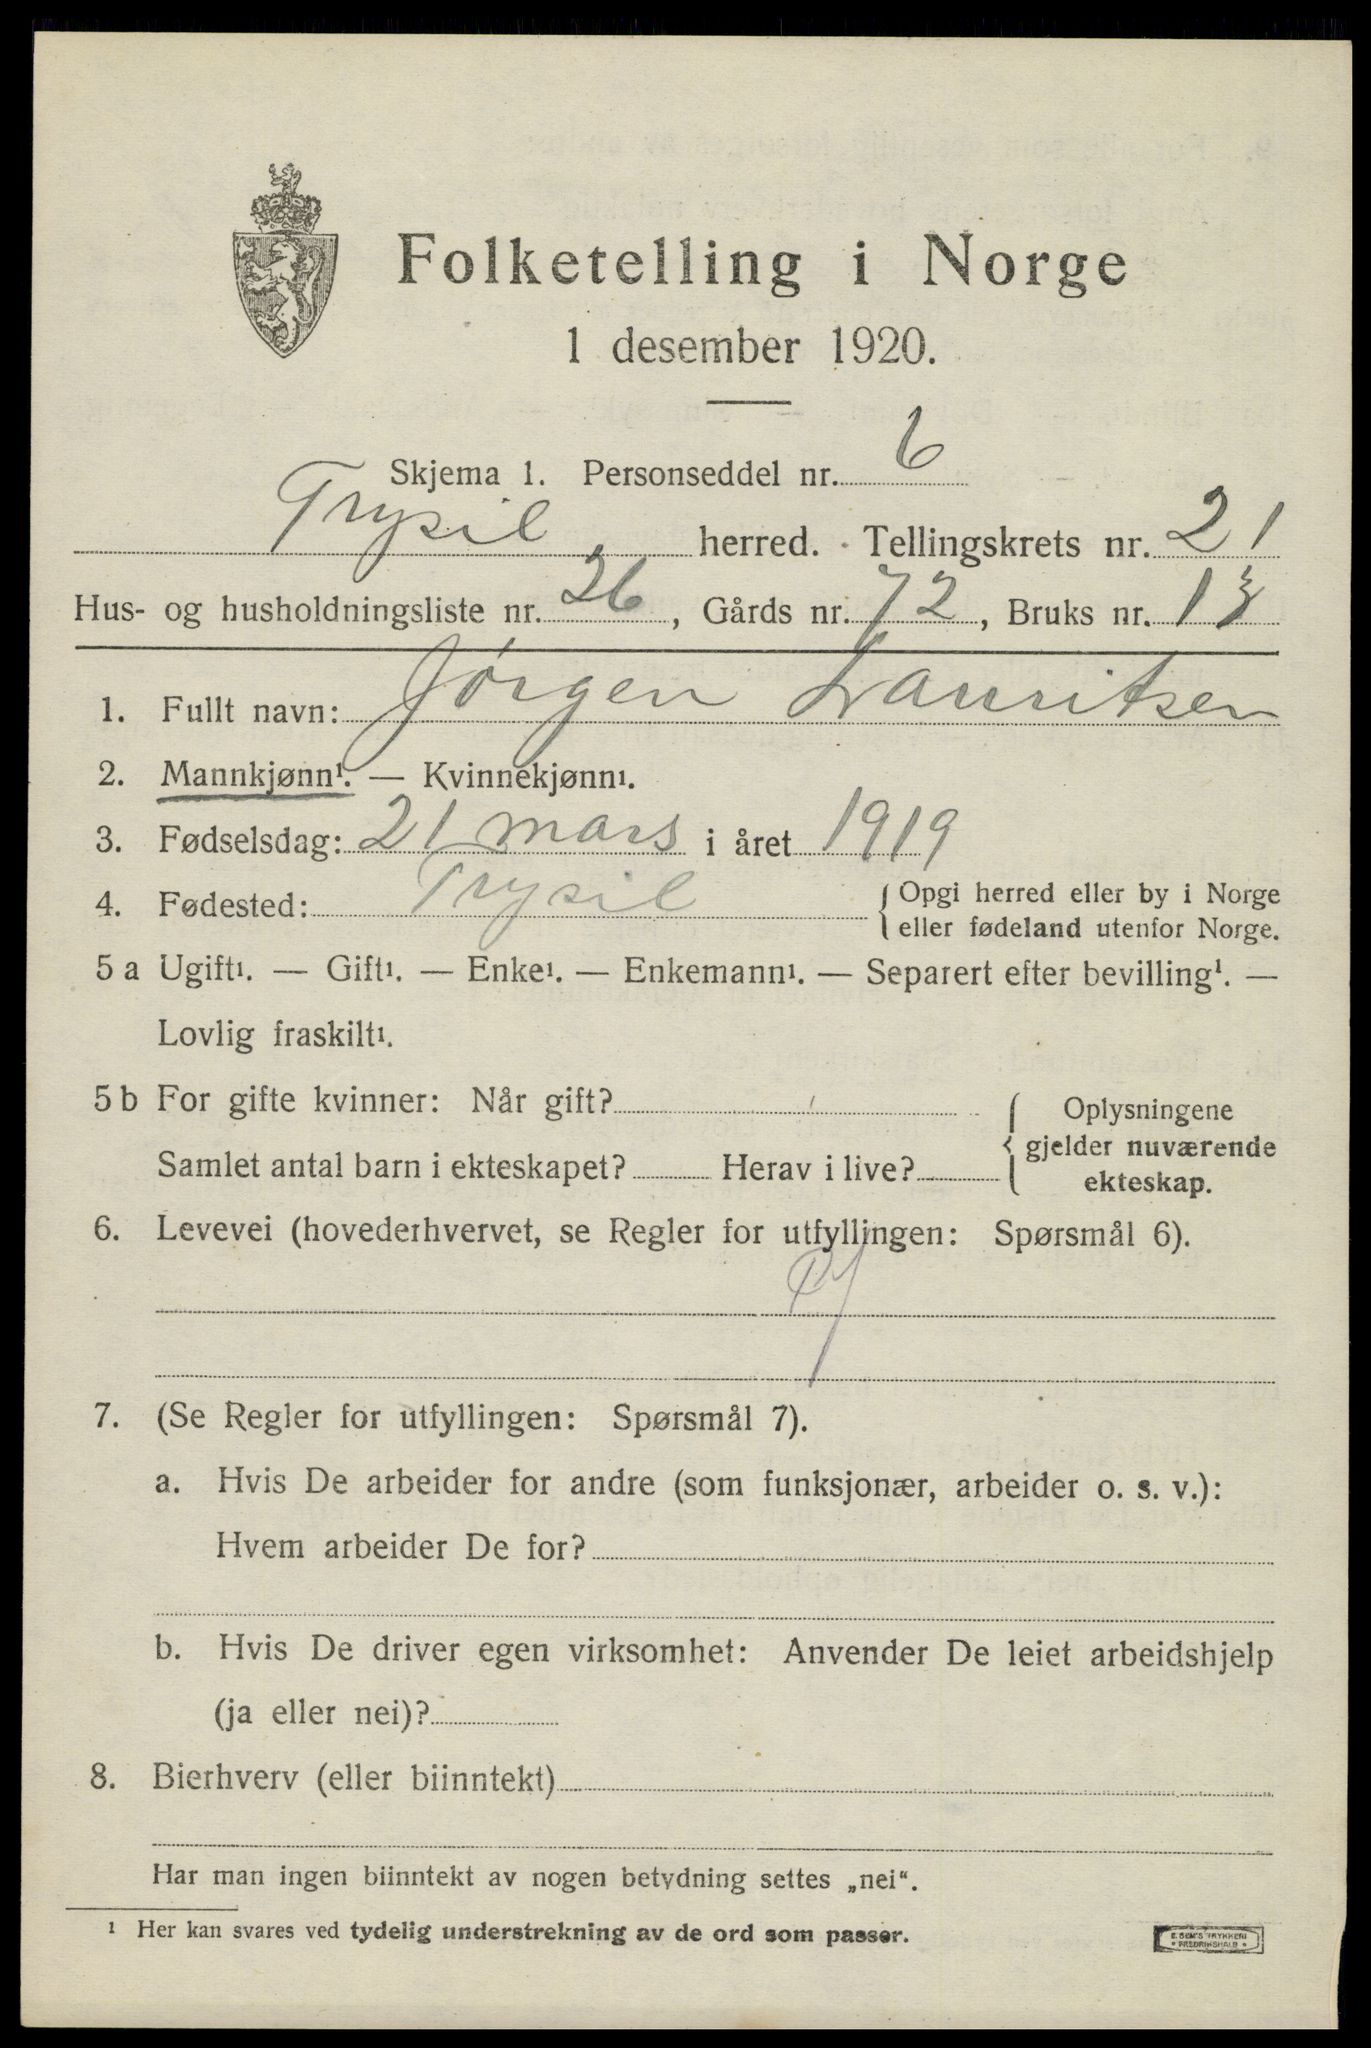 Folketelling i Norge
1 desember 1920.
Skjema 1. Personseddel nr. 6
Trysil herred. Tellingskrets nr. 21
Hus- og husholdningsliste nr. 26, Gårds nr. 72, Bruks nr. 13
1. Fullt navn: Jørgen Lauritsen
2. Mannkjønn¹. — Kvinnekjønn¹.
3. Fødselsdag: 21 mars i året 1919
4. Fødested: Trysil {Opgi herred eller by i Norge
eller fødeland utenfor Norge.
5 a Ugift¹. — Gift¹. — Enke¹. — Enkemann¹. — Separert efter bevilling¹. —
Lovlig fraskilt¹.
5 b For gifte kvinner: Når gift? {Oplysningene
gjelder nuværende
Samlet antal barn i ekteskapet? Herav i live? ekteskap.
6. Levevei (hovederhvervet, se Regler for utfyllingen: Spørsmål 6).
7. (Se Regler for utfyllingen: Spørsmål 7).
a. Hvis De arbeider for andre (som funksjonær, arbeider o. s. v.):
Hvem arbeider De for?
b. Hvis De driver egen virksomhet: Anvender De leiet arbeidshjelp
(ja eller nei)?
8. Bierhverv (eller biinntekt)
Har man ingen biinntekt av nogen betydning settes „nei“.
¹ Her kan svares ved tydelig understrekning av de ord som passer.
E. SEM'S TRYKKERI
• FREDRIKSHALD •